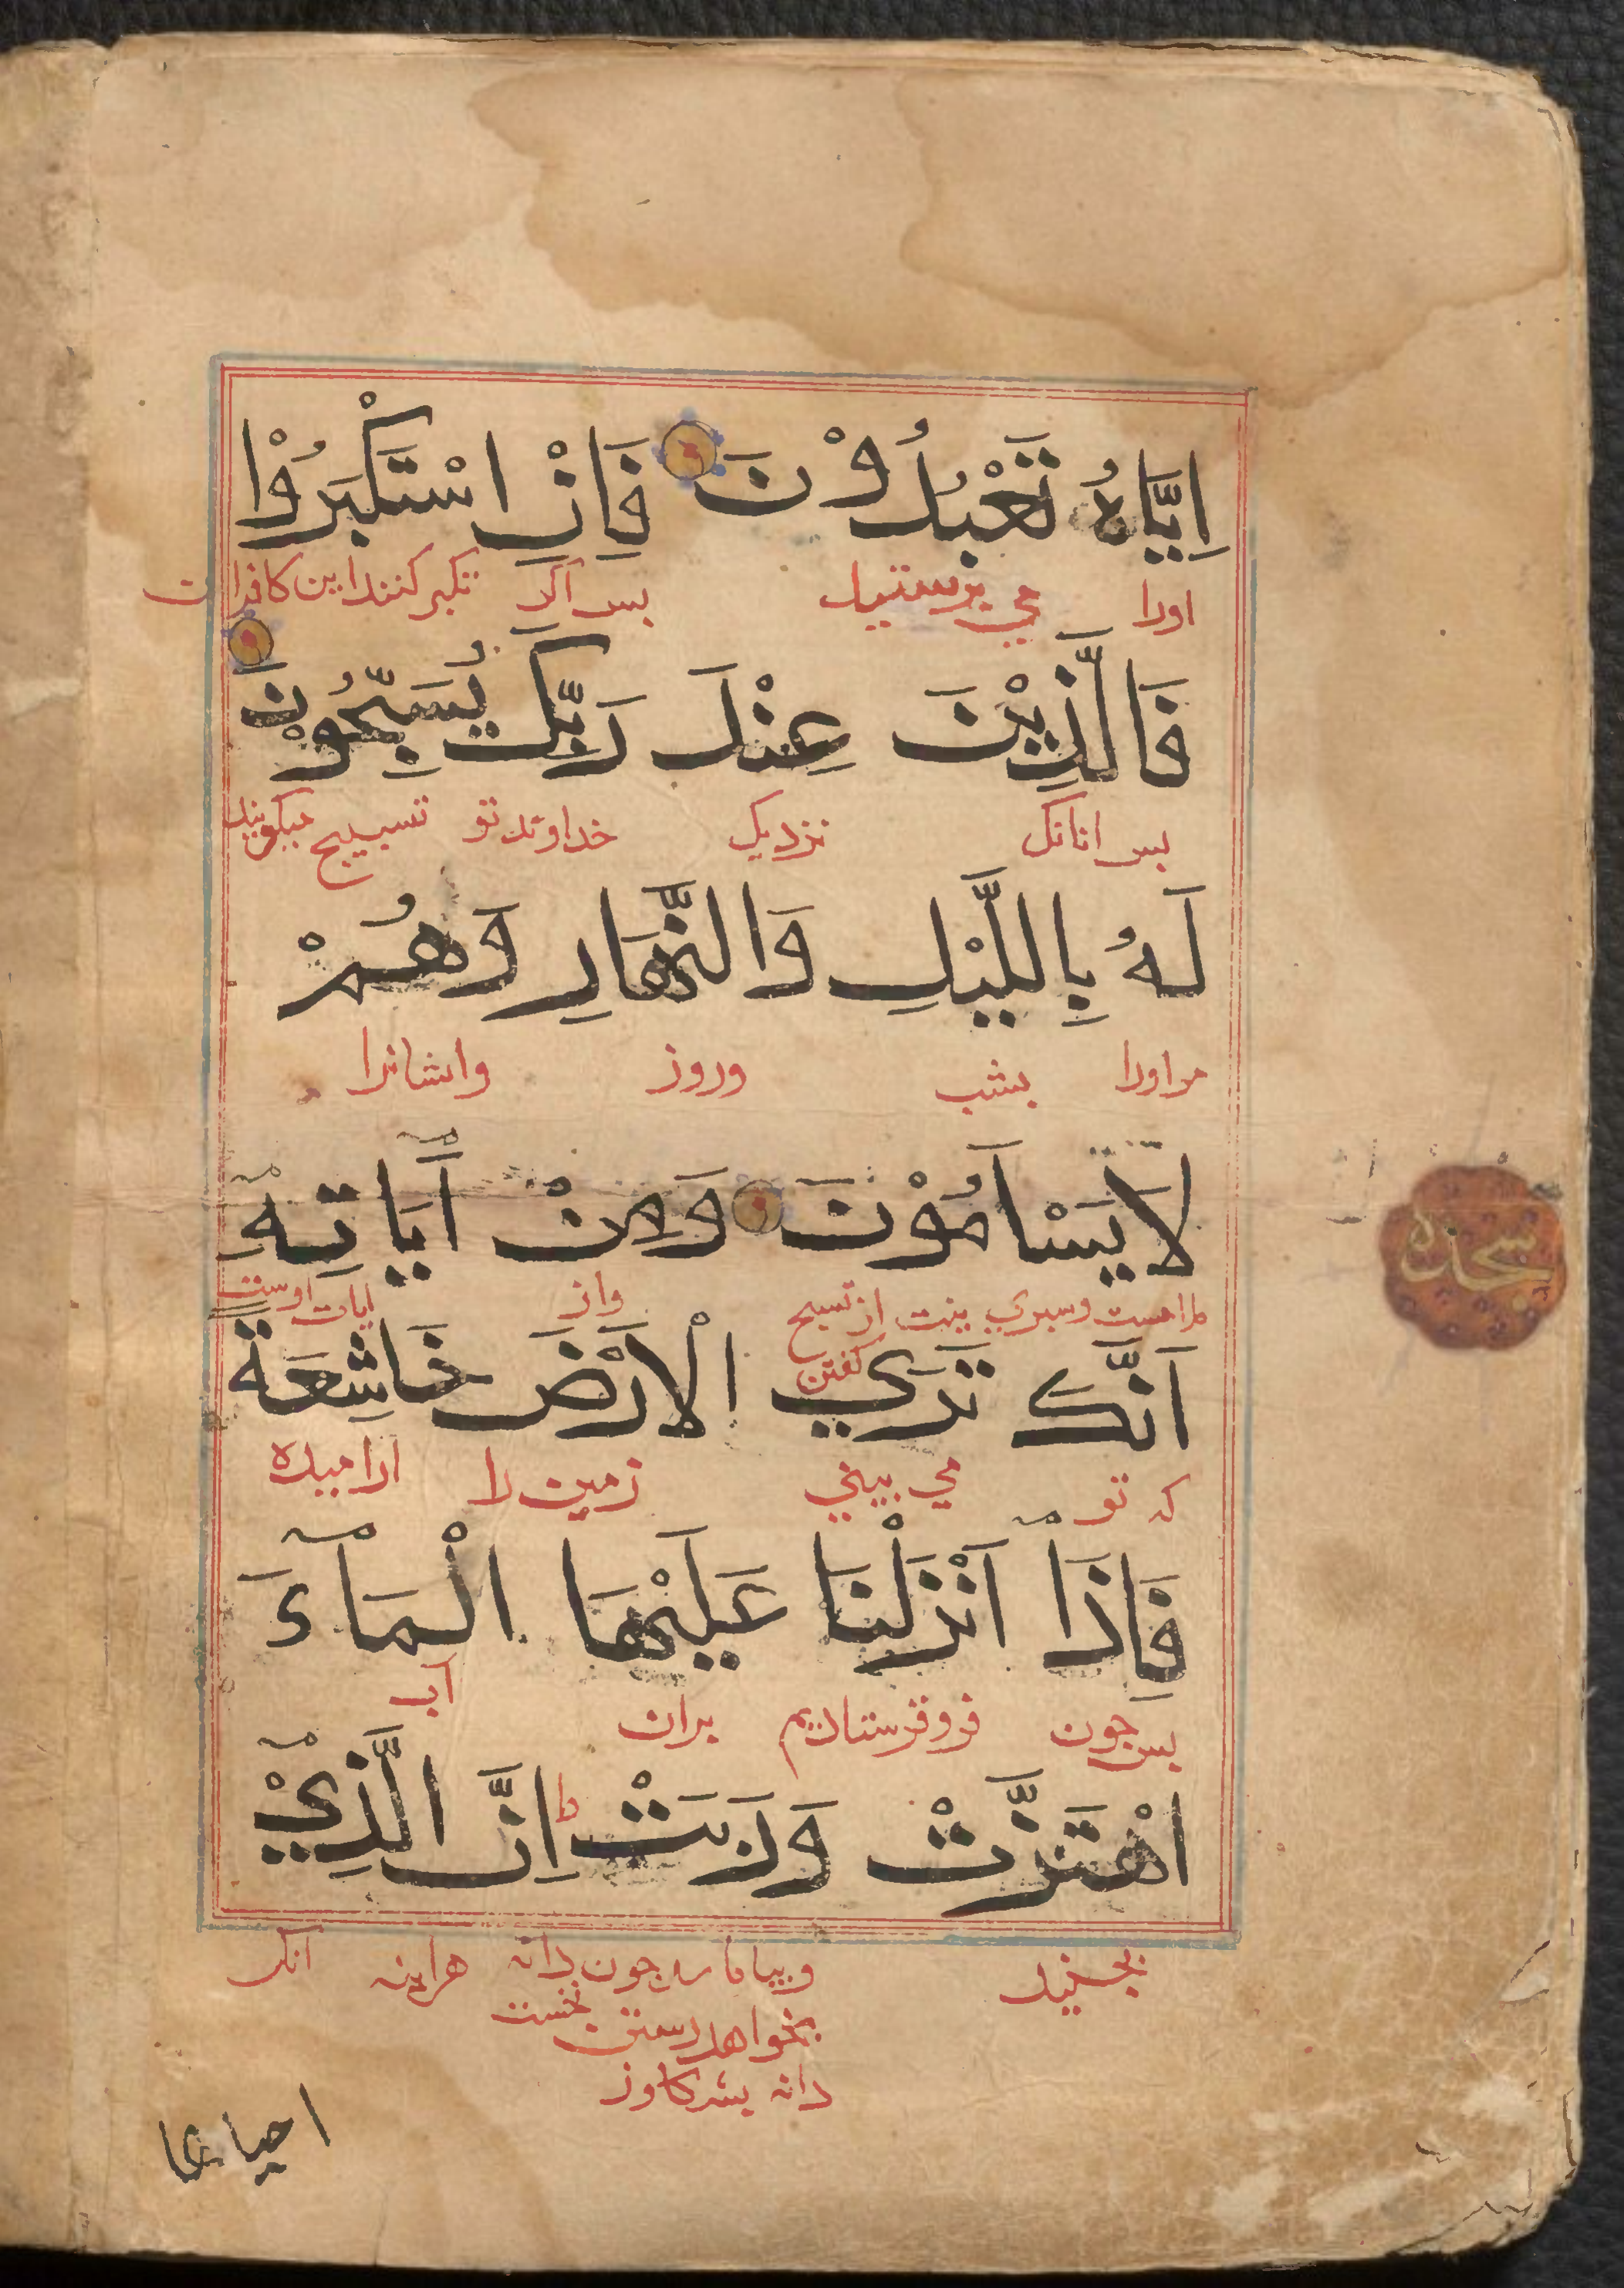 اِيَّاهُ تَعْبُدُوْنَ فَاِنْ اسْتَكْبَرُوْا
اورا مي پرستيد بس اكر تكبر كنند اين كافران
فَالَّذِيْنَ عِنْدَ رَبِّكَ يُسَبِّحُوْنَ
بس انانك نزديك خداوند تو تسبيح ميكويند
لَهُ بِاللَّيْلِ وَالنَّهَارِ وَهُمْ
مراورا بشب وروز وايشانرا
لَا يَسْاَمُوْنَ وَمِنْ اٰيَاتِهٖ
سجده
وسيري نيت از تسبيح كفتن واز ايات اوست
اَنَّكَ تَرَي الْاَرْضَ خَاشِعَةً
كه تو مي بيني زمين را اراميده
فَاِذَا اَنْزَلْنَا عَلَيْهَا الْمَآءَ
بس جون فروفرستاديم بران آب
اهْتَزَّتْ وَرَبَتْ ط اِنَّ الَّذِيْ
بجنبيد جون دانه هراينه انك
بخواهد رستن نخست
دانه
احياها